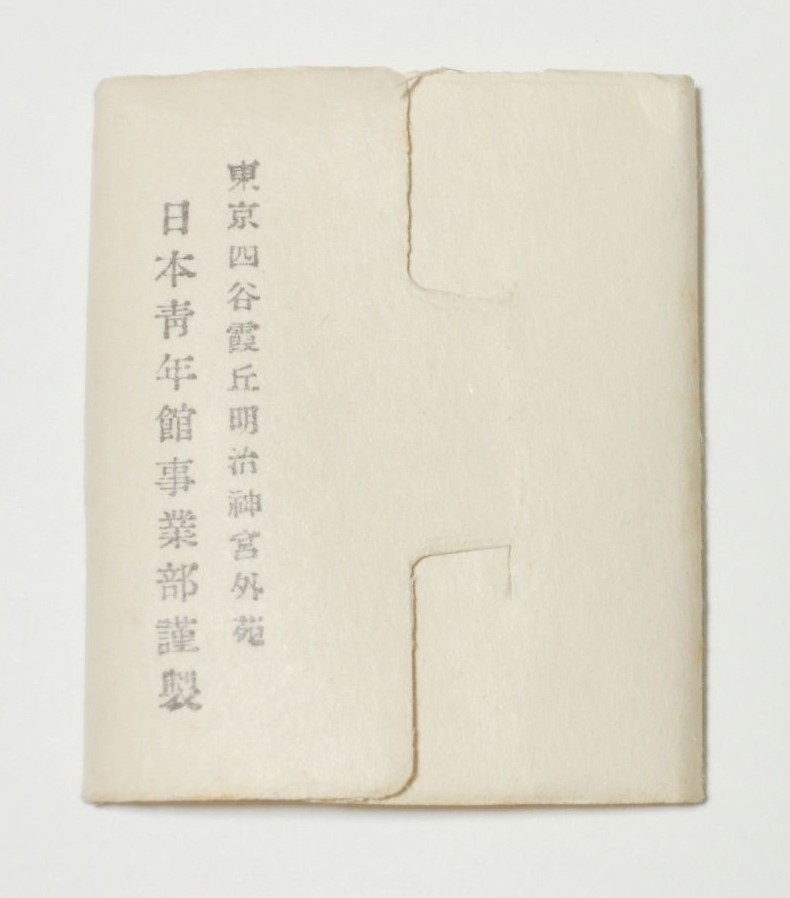 東京四谷霞丘明治神宮外苑
日本靑年館事業部謹製